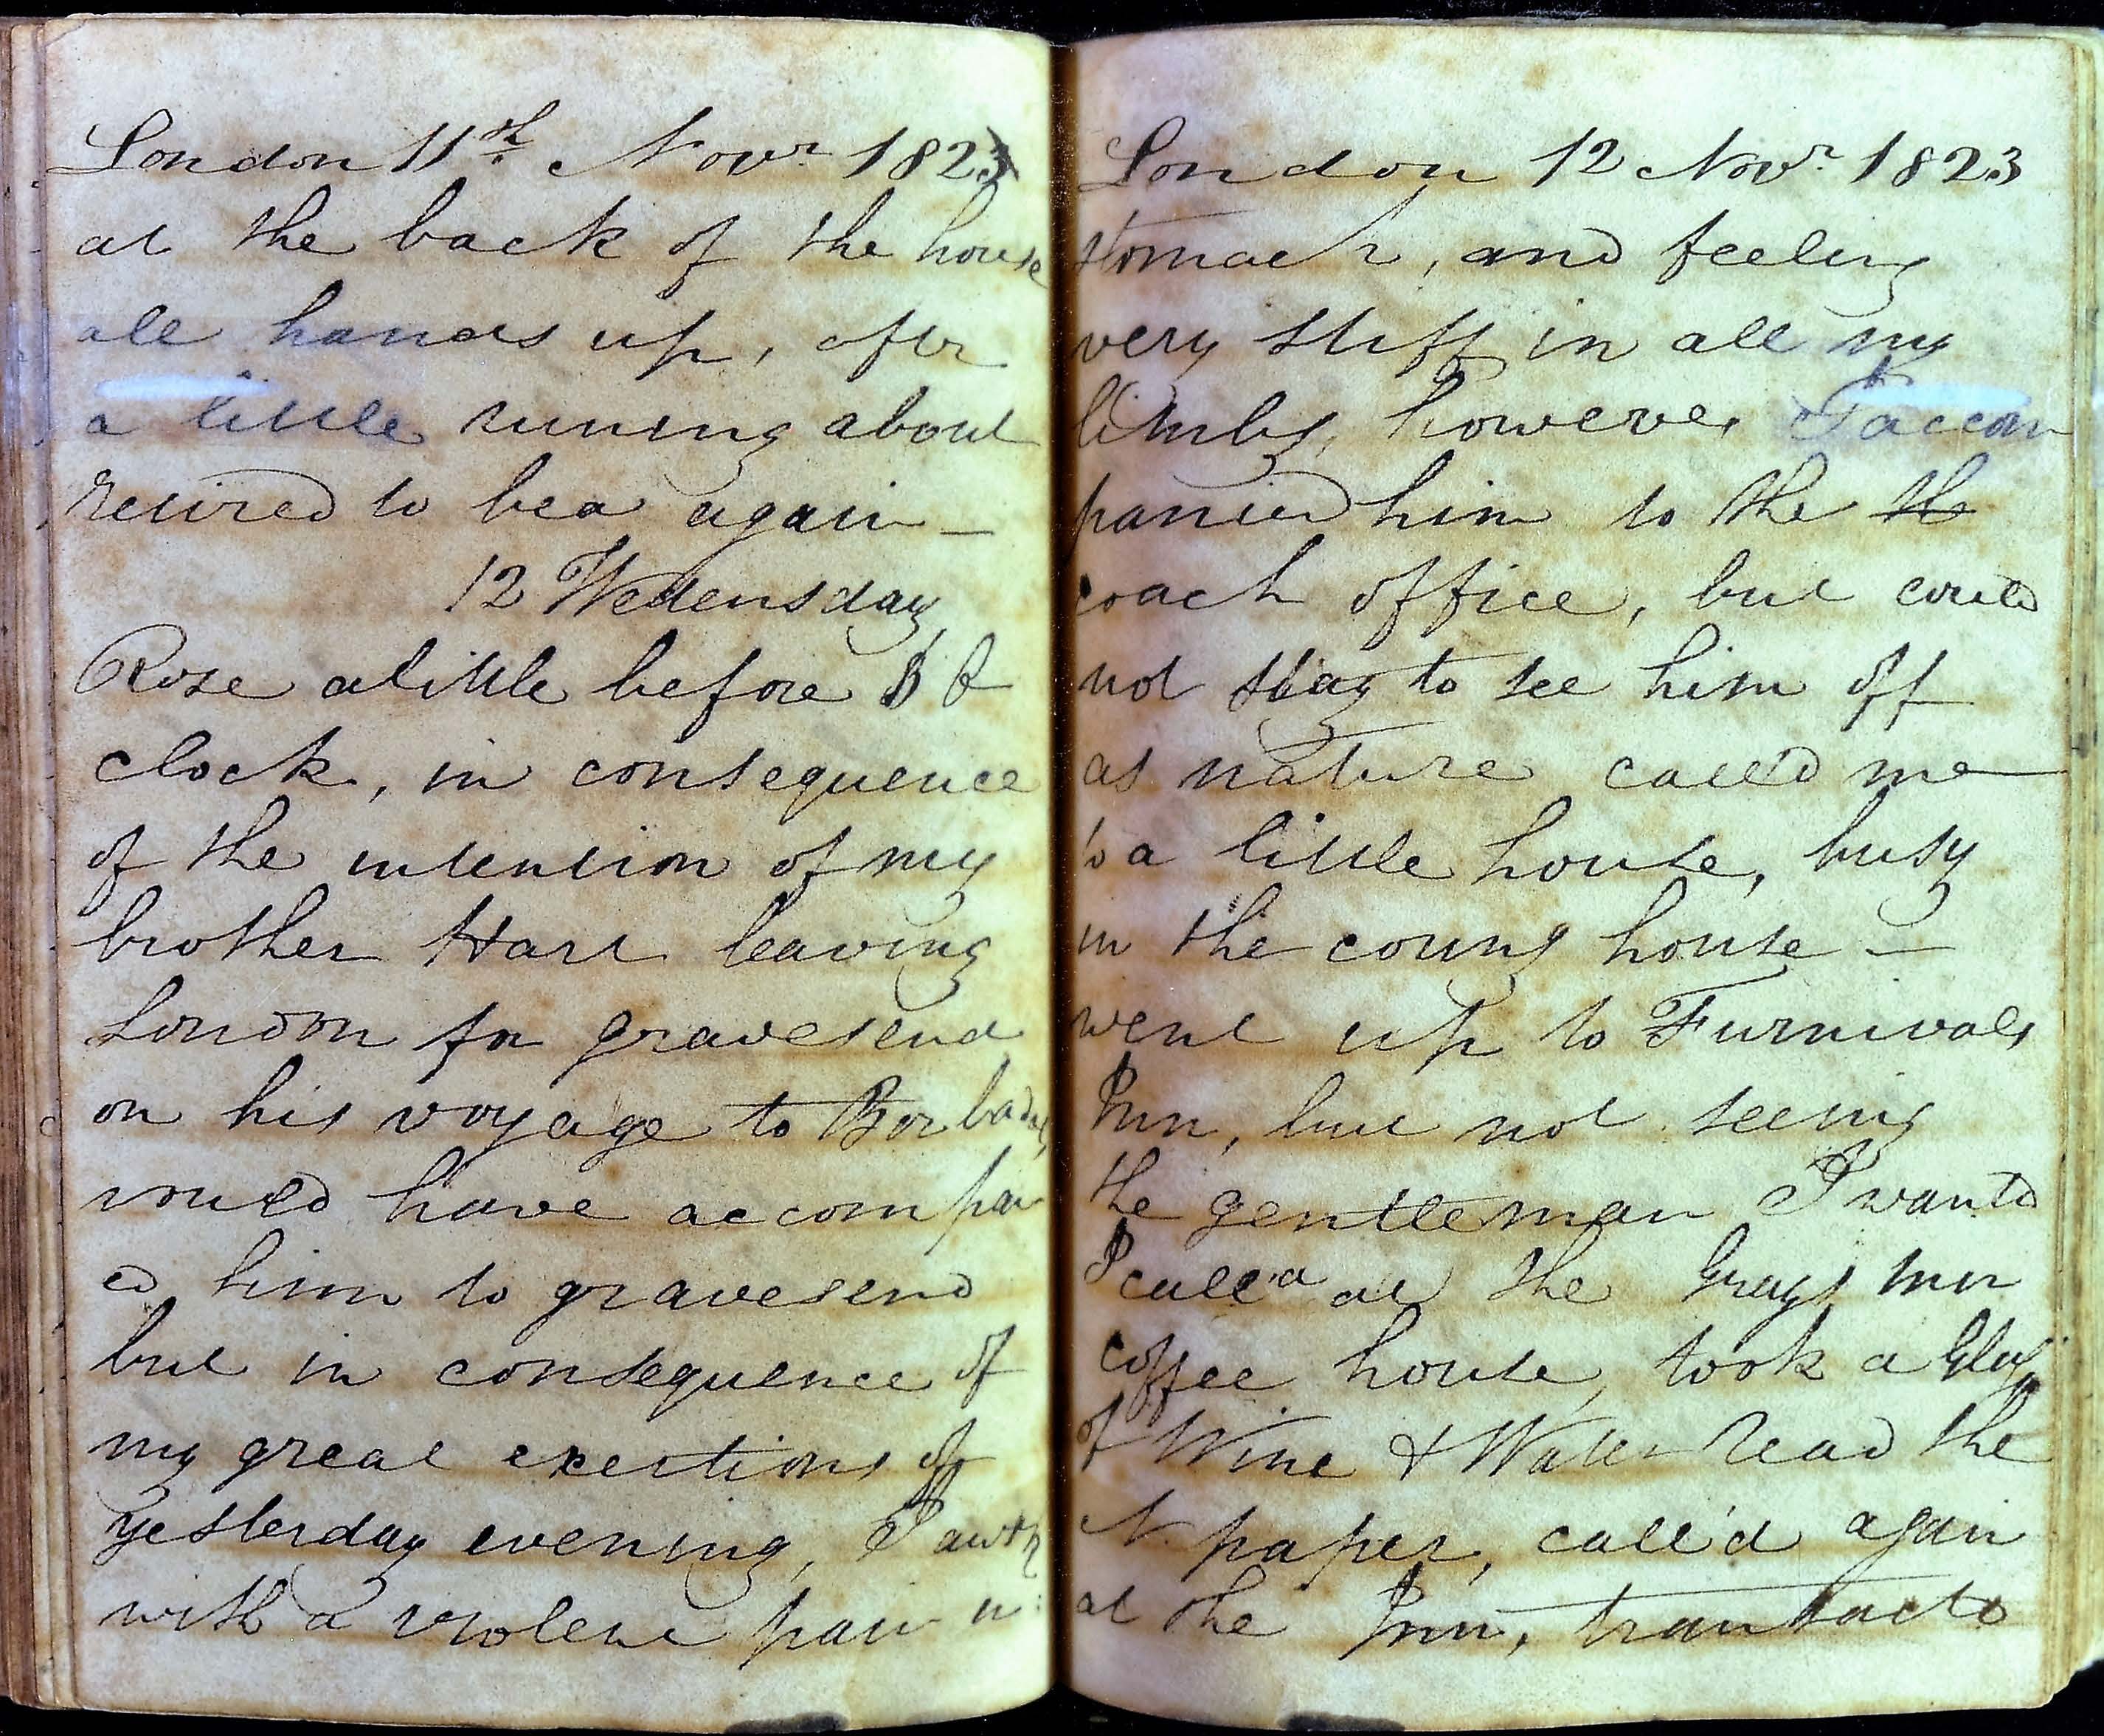 London 11th Novr 1823
at the back of the house
all hands up, after
a little runing about
retired to bed again —
12 Wedensday
Rose alittle before 8 O
clock, in consequence
of the intention of my
brother Hart leaving
London for gravesend
on his voyage to Barbados,
would have accompan
ed him to gravesend
but in consequence of
my great exertions of
yesterday evening, I awok
with a violent pain in
London 12 Novr 1823
stomach, and feeling
very stiff in all my
limbs, however I accom
panied him to the th
coach office, but could
not stay to see him off
as nature called me
to a little house, busy
in the couning house —
went up to Furnivals
Inn, but not seeing
the gentleman I wanted
I calld at the Grays inn
coffee house, took a Glass
of Wine & Water read the
N. paper, call'd again
at the Inn, transacted